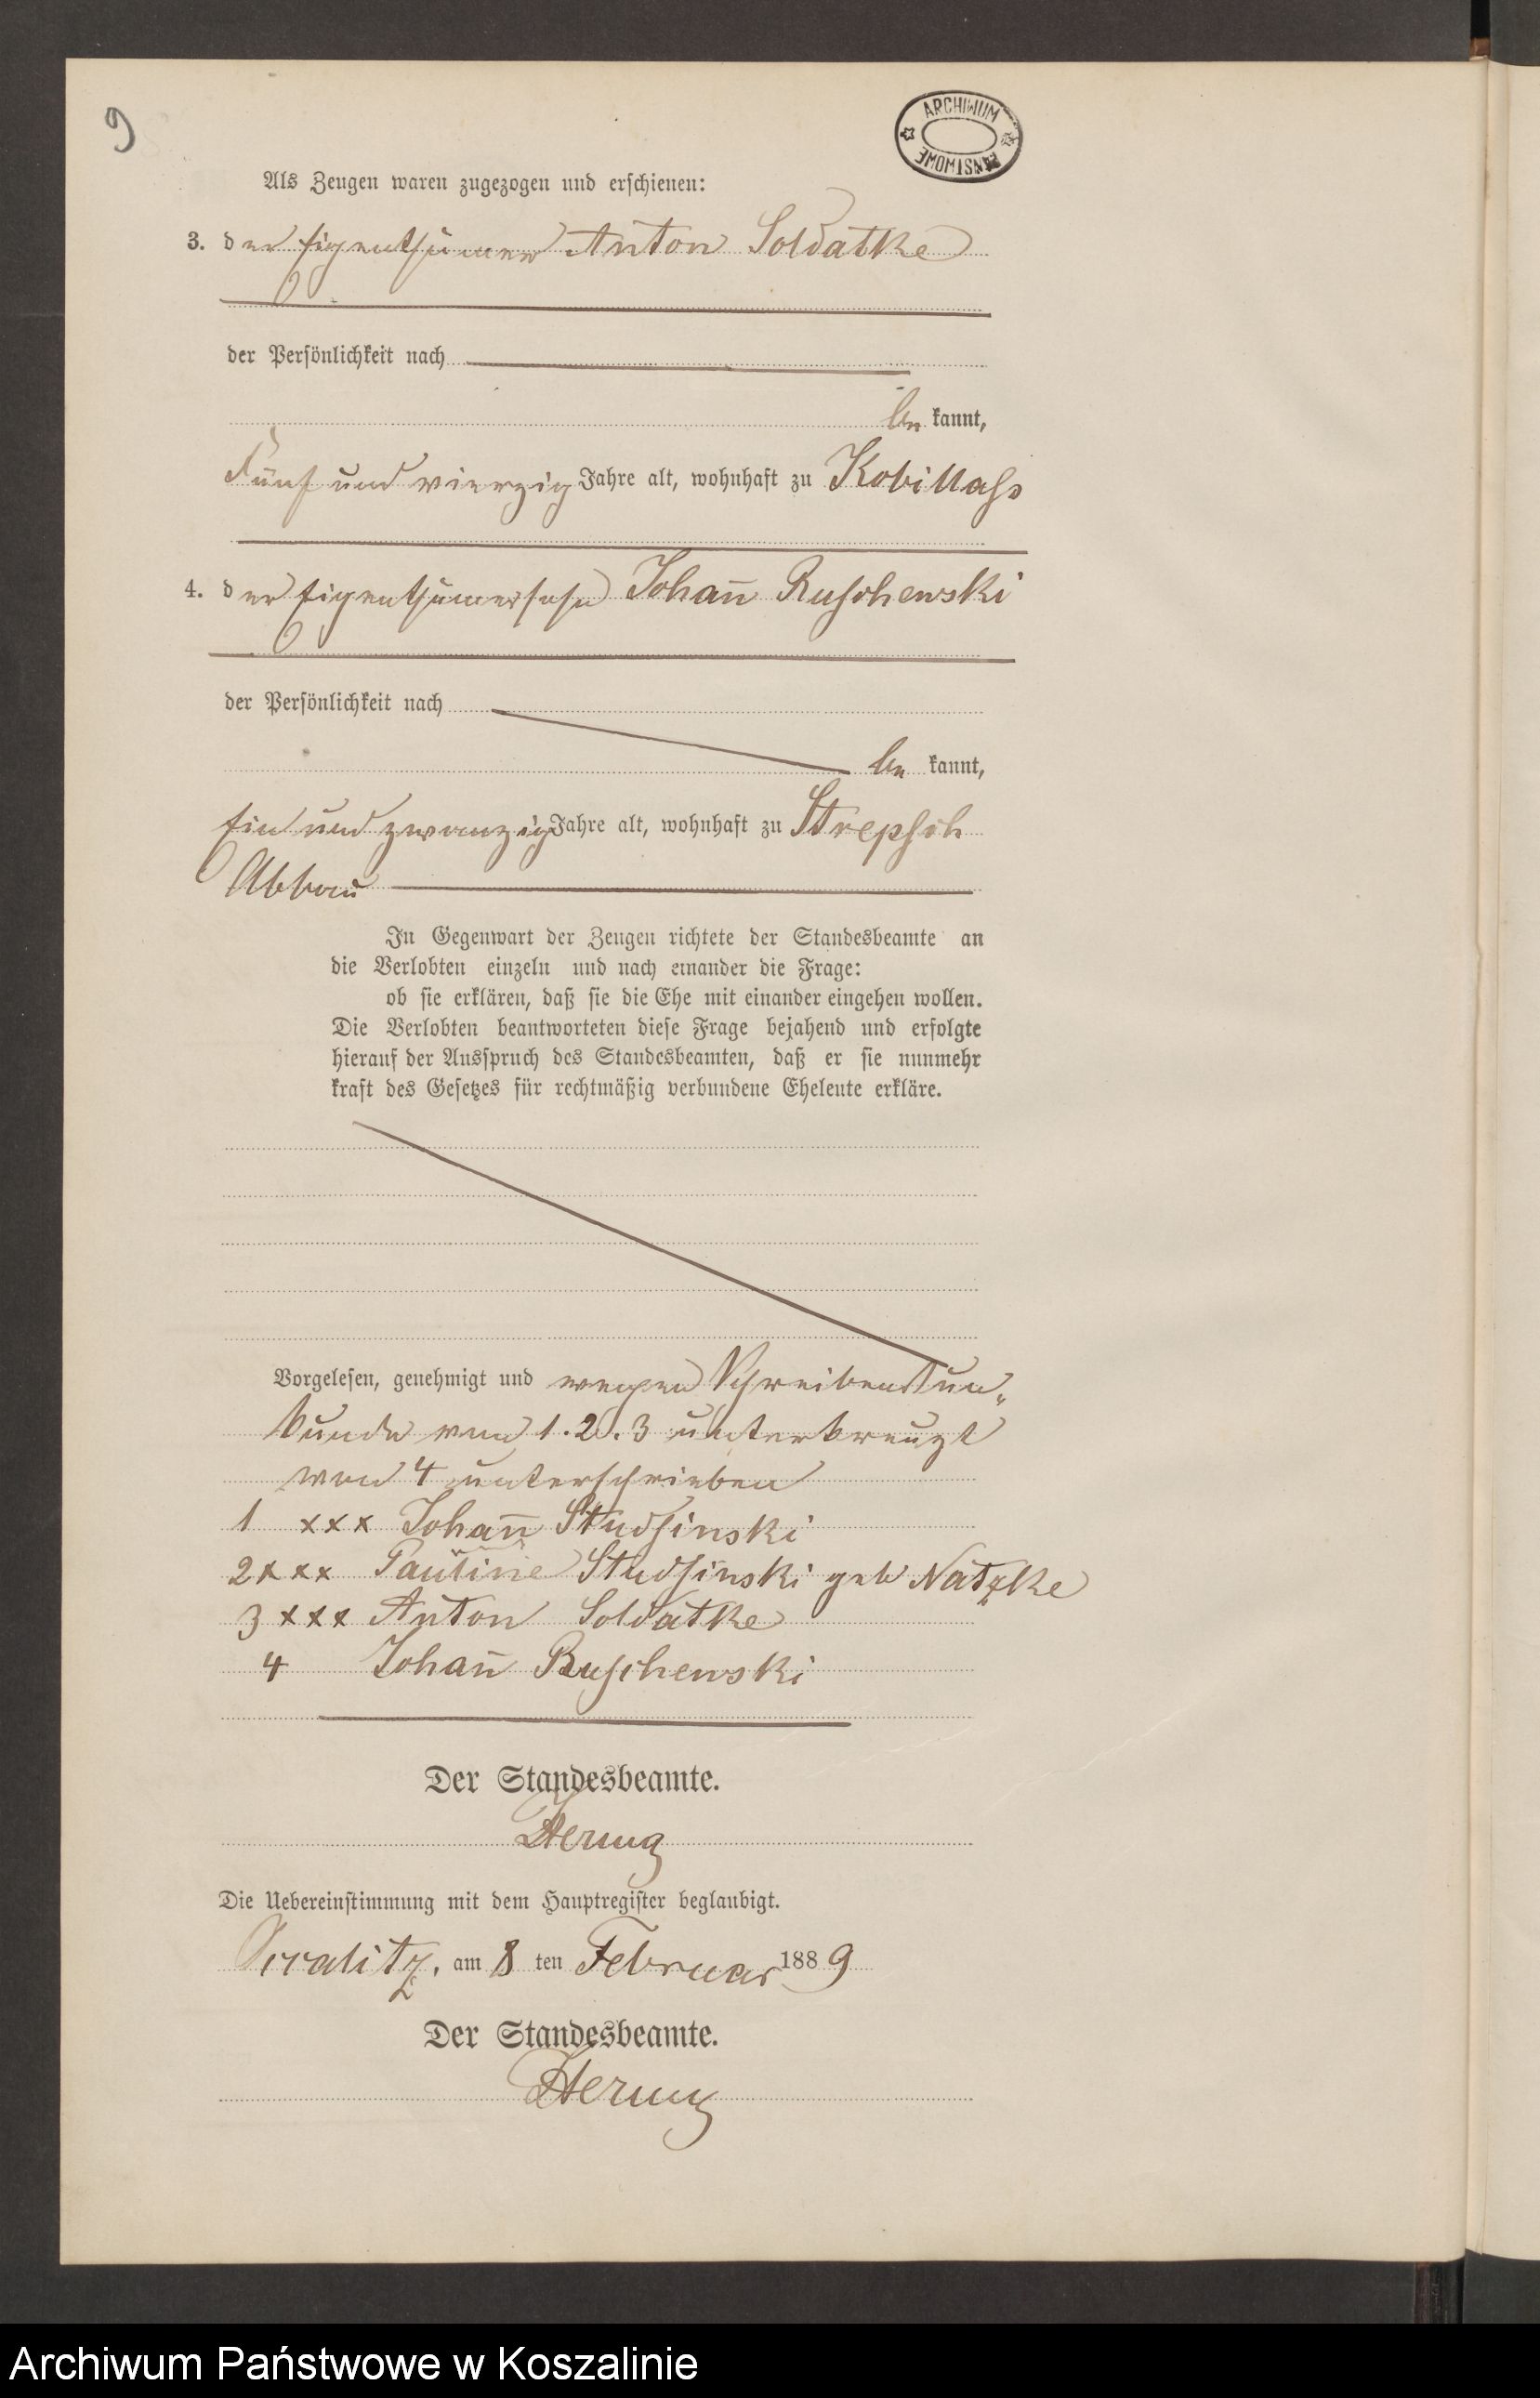 9
ARCHIWUM
PAŃSTWOWE
Als Zeugen waren zugezogen und erschienen:
3. der Eigenthümer Anton Soldatke
der Persönlichkeit nach
be kannt,
Fünf und vierzig Jahre alt, wohnhaft zu Kobillass
4. der Eigenthümersohn Johan̅ Ruschewski
der Persönlichkeit nach
be kannt,
Ein und zwanzig Jahre alt, wohnhaft zu Strepsch
Abbau
In Gegenwart der Zeugen richtete der Standesbeamte an
die Verlobten einzeln und nach einander die Frage:
ob sie erklären, daß sie die Ehe mit einander eingehen wollen.
Die Verlobten beantworteten diese Frage bejahend und erfolgte
hierauf der Ausspruch des Standesbeamten, daß er sie nunmehr
kraft des Gesetzes für rechtmäßig verbundene Eheleute erkläre.
Vorgelesen, genehmigt und wegen Schreibens un„
kunde von 1. 2. 3 unterkreuzt
von 4 unterschrieben
1 xxx Johan̅ Studsinski
2 xxx Pauline Studsinski geb Natzke
3 xxx Anton Soldatke
4 Johan̅ Ruschewski
Der Standesbeamte.
Die Uebereinstimmung mit dem Hauptregister beglaubigt.
am 8 ten Februar 1889
Der Standesbeamte.
Archiwum Państwowe w Koszalinie